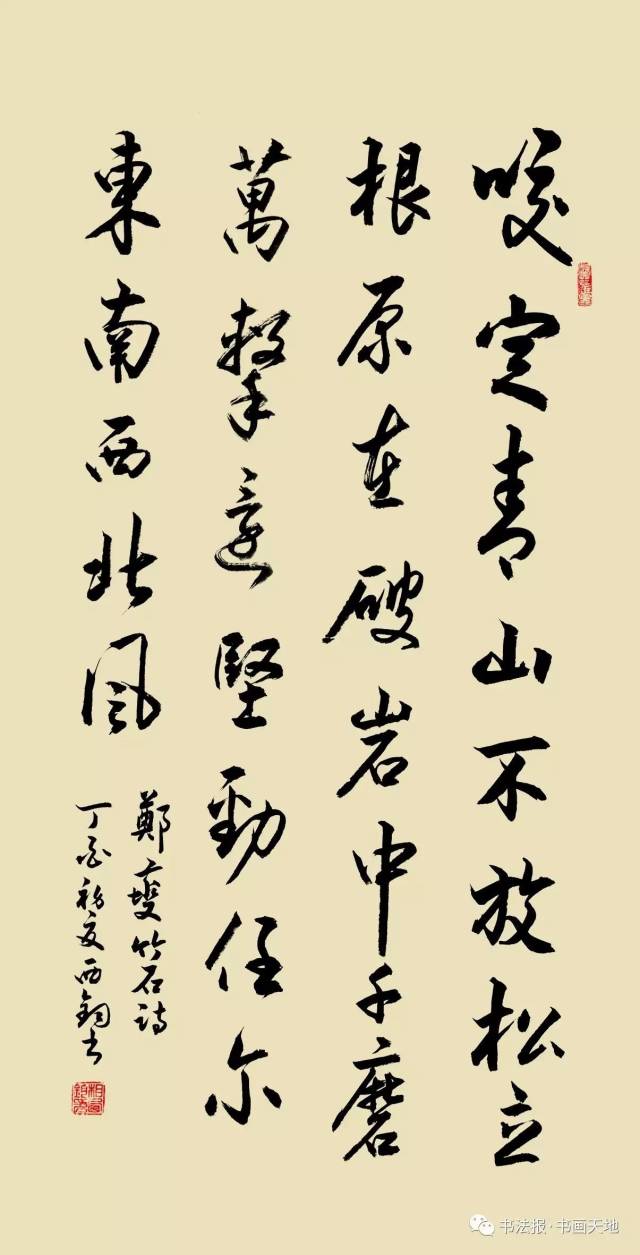 咬定青山不放松立
根原在破岩中千磨
萬擊還堅勁任尔
東南西北风
鄭燮竹石詩
丁酉初夏西鈞书
书法报·书画天地